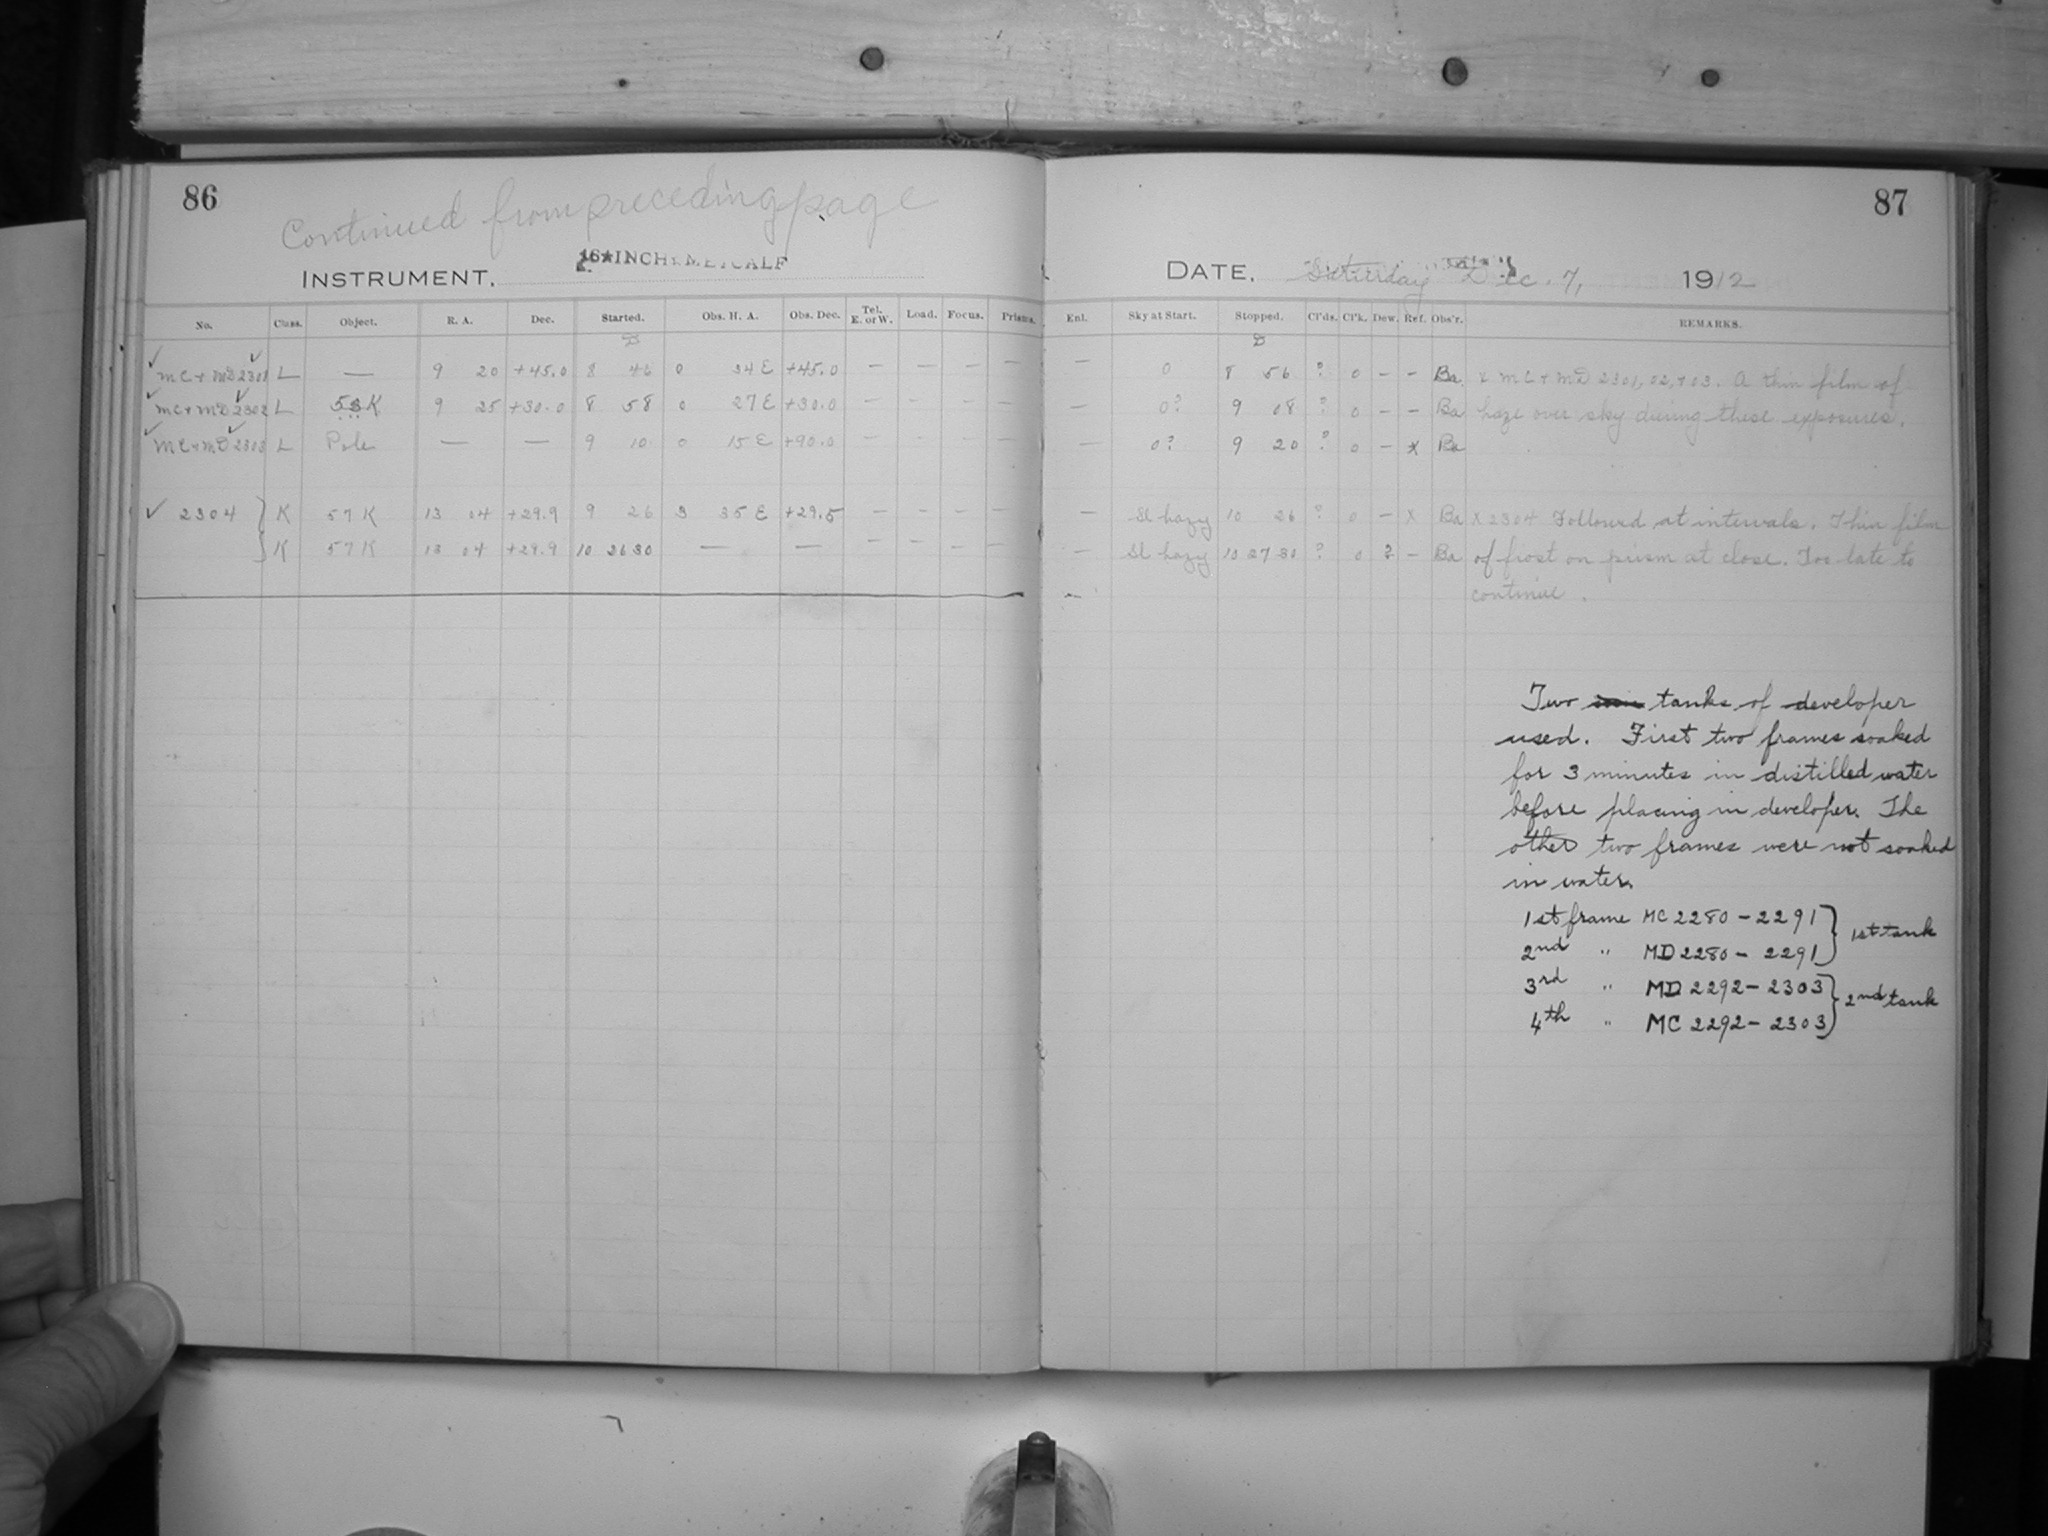 86
Continued from preceding page
INSTRUMENT. 16 INCH METCALF
No. Class. Object. R. A. Dec. Started. Obs. H. A. Obs. Dec. Tel. E. or W. Load. Focus. Prisms.
✓ MC + MD 2301 ✓ L — 9 20 +45.0 8 46 0 34 E +45.0 — — — —
✓ MC + MD 2302 ✓ L 53 K 9 25 +30.0 8 58 0 27 E +30.0 — — — —
✓ MC + MD 2303 ✓ L Pole — — 9 10 0 15 E +90.0 — — — —
✓ 2304 } K 57 K 13 04 +29.9 9 26 3 35 E +29.5 — — — —
K 57 K 13 04 +29.9 10 26 30 — — — — — —
87
DATE. Saturday Dec. 7, 1912
Enl. Sky at Start. Stopped. Cl'ds. Cl'k. Dew. Ref. Obs'r. REMARKS.
— 0 8 56 ? 0 — — Ba. x MC + MD 2301, 02, + 03. A thin film of
— 0? 9 08 ? 0 — — Ba haze over sky during these exposures.
— 0? 9 20 ? 0 — x Ba
— Sl hazy 10 26 ? 0 — x Ba x 2304 Followed at intervals. Thin film
— Sl hazy 10 27 30 ? 0 2 — Ba of frost on prism at close. Too late to
continue.
Two tanks of developer
used. First two frames soaked
for 3 minutes in distilled water
before placing in developer. The
other two frames were not soaked
in water.
1st frame MC 2280 – 2291 } 1st tank
2nd " MD 2280 – 2291
3rd " MD 2292 – 2303 } 2nd tank
4th " MC 2292 – 2303